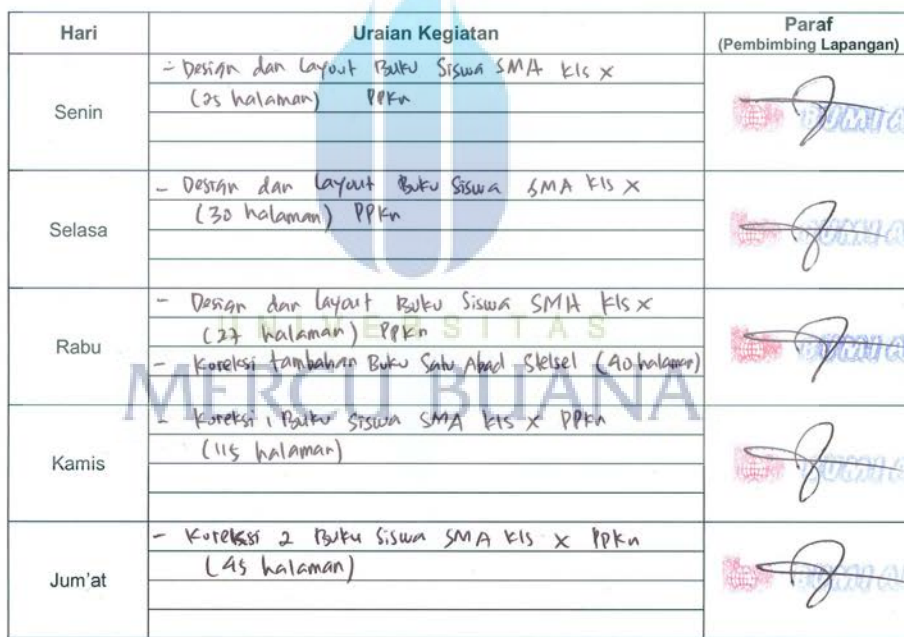 Hari Uraian Kegiatan Paraf
(Pembimbing Lapangan)
Senin
- Design dan Layout Buku Siswa SMA kls X
(25 halaman) PPKn
BUMI A
Selasa
- Design dan Layout Buku Siswa SMA kls X
(30 halaman) PPKn
BUMI A
Rabu
- Design dan Layout Buku Siswa SMA kls X
(27 halaman) PPKn
UNIVERSITAS
- Koreksi tambahan Buku Satu Abad (90 halaman)
MERCU BUANA
BUMI A
Kamis
- Koreksi 1 Buku Siswa SMA kls X PPKn
(115 halaman)
BUMI A
Jum'at
- Koreksi 2 Buku Siswa SMA kls X PPKn
(45 halaman)
BUMI A